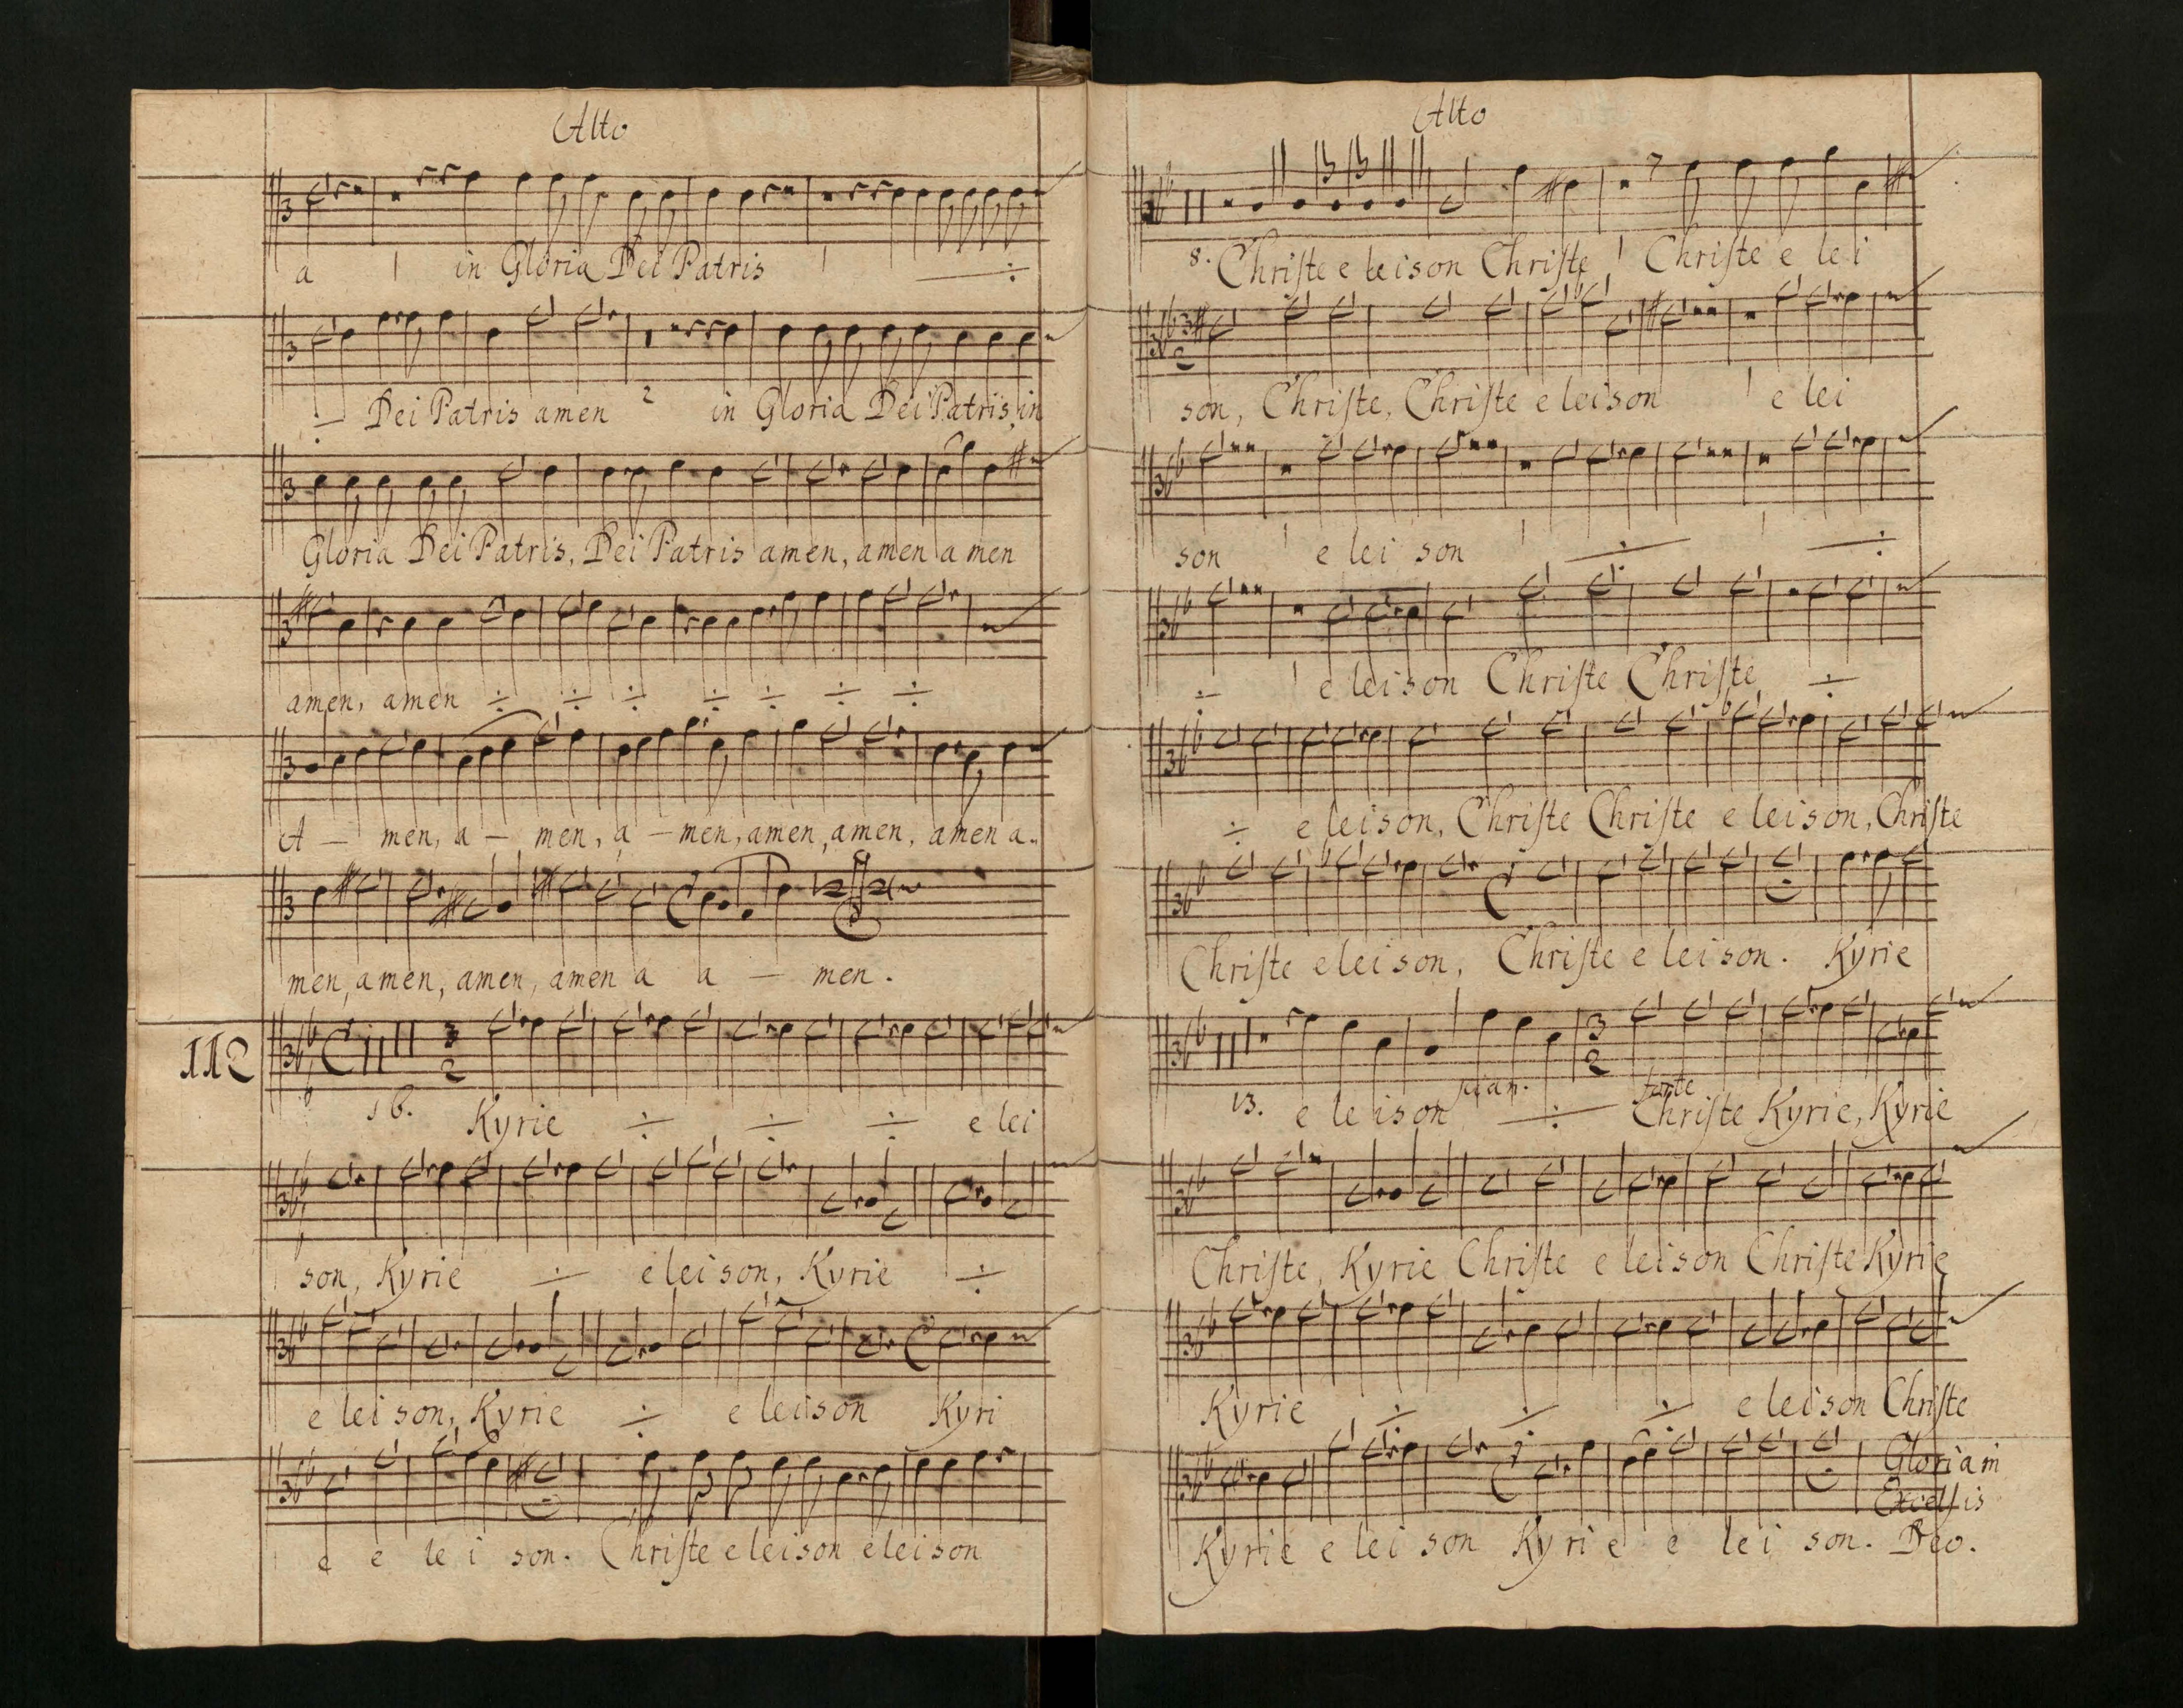 Alto
a | in Gloria Dei Patris | ÷
÷ Dei Patris amen 2 in Gloria Dei Patris, in
Gloria Dei Patris, Dei Patris amen, amen a men
amen, amen ÷ ÷ ÷ ÷ ÷ ÷ ÷
A — men, a — men, a — men, amen, amen, amen a..
men, amen, amen, amen a a — men.
112
16. Kyrie ÷ ÷ ÷ e lei
son, Kyrie ÷ eleison, Kyrie ÷
e lei son, Kyrie ÷ e leison Kyri
e e le i son. Chriſte eleison eleison
Alto
8. Chriſte e leison Chriſte | Chriſte e lei
son, Chriſte, Chriſte e leison | e lei
son | e lei son | ÷ | ÷
÷ | e leison Chriſte Chriſte ÷
÷ e leison, Chriſte Chriſte e leison, Chriſte
Chriſte eleison, Chriſte e leison. Kyrie
pian. forte
13. e leison ÷ Chriſte Kyrie, Kyrie
Chriſte, Kyrie Chriſte e leison Chriſte Kyrie
Kyrie ÷ ÷ ÷ e leison Chriſte
Gloria in
Excelſis
Kyrie e lei son Kyri e e lei son. Deo.